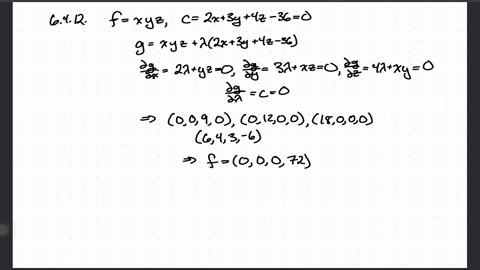 6.4.12. f = xyz, c = 2x+3y+4z-36=0
g = xyz + λ(2x+3y+4z-36)
∂g/∂x = 2λ+yz=0, ∂g/∂y = 3λ+xz=0, ∂g/∂z = 4λ+xy=0
∂g/∂λ = c = 0
⇒ (0,0,9,0), (0,12,0,0), (18,0,0,0)
(6,4,3,-6)
⇒ f = (0,0,0,72)